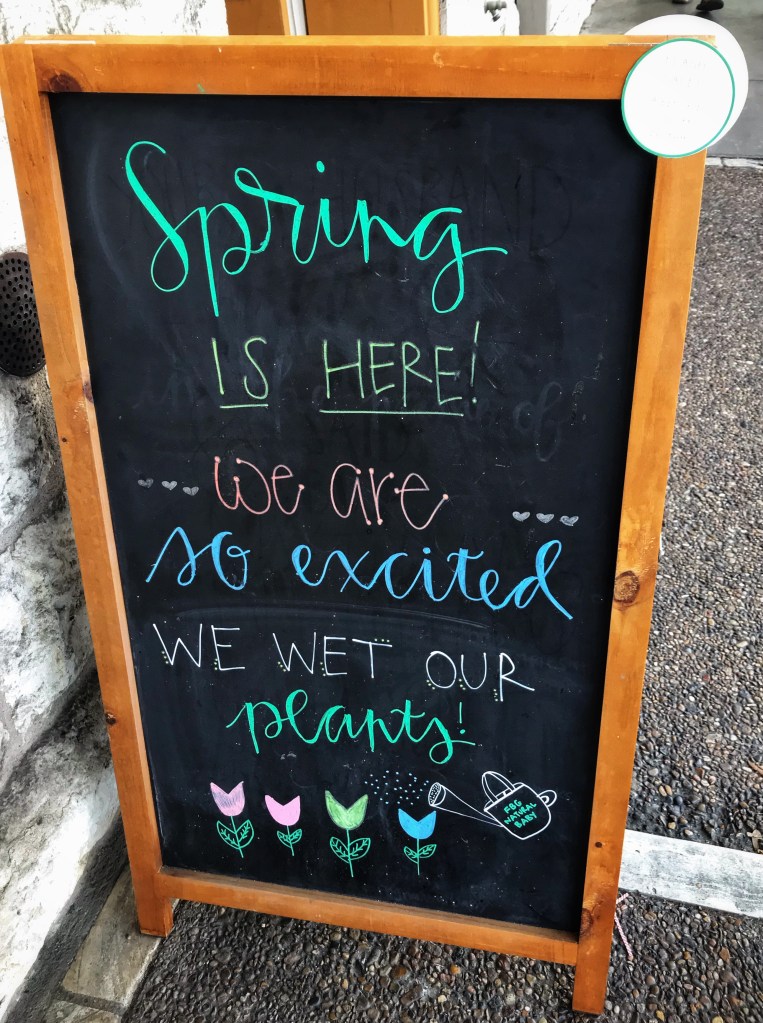 Spring
IS HERE!
we are
so excited
WE WET OUR
plants!
FBG
NATURAL
BABY